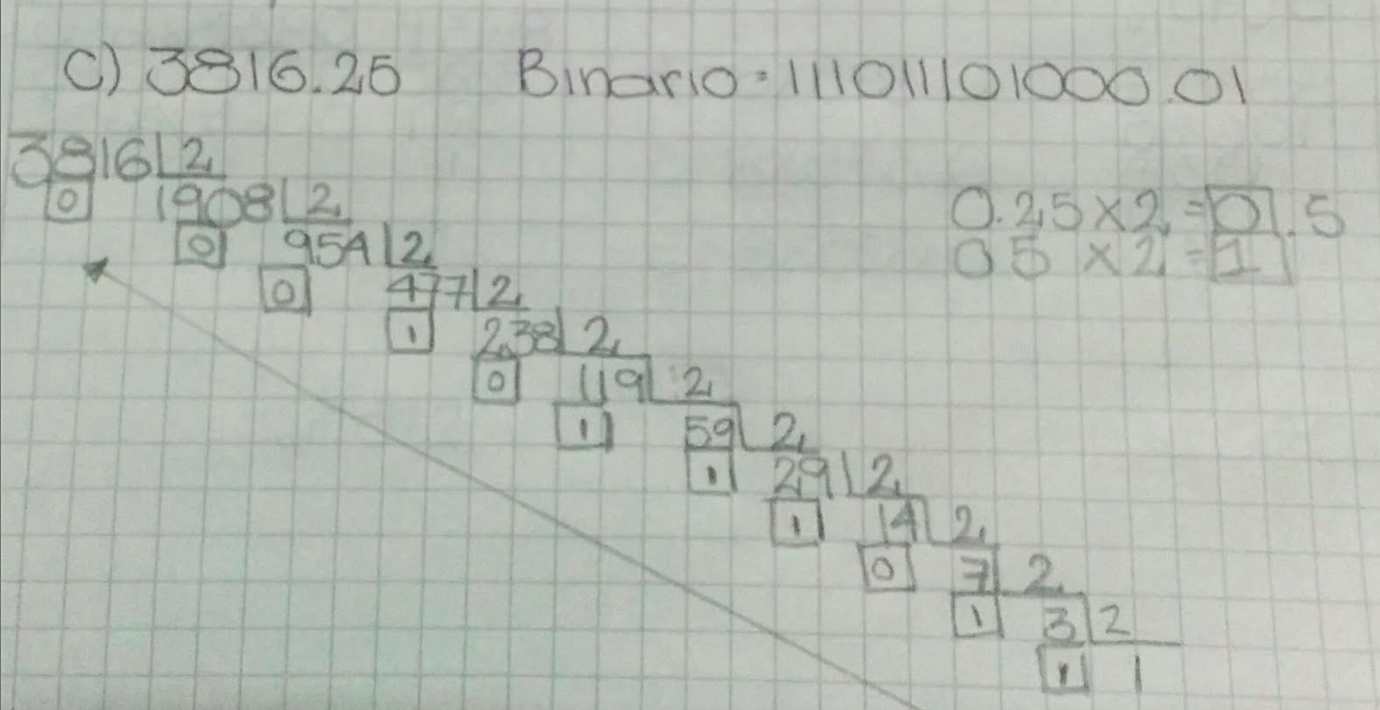 C) 3816.25 Binario = 111011101000.01
3816 2
0 1908 2
0 954 2
0 477 2
1 238 2
0 119 2
1 59 2
1 29 2
1 14 2
0 7 2
1 3 2
1 1
0.25 x 2 = 0.5
0 5 x 2 = 1